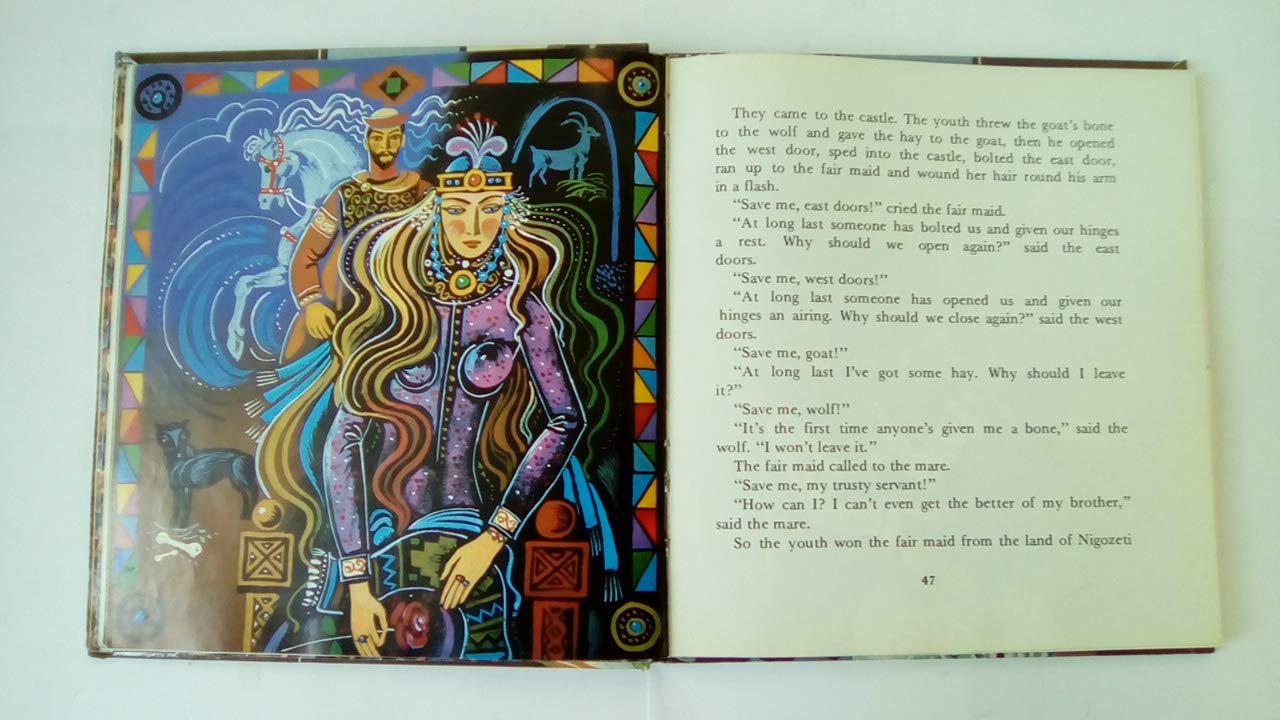 They came to the castle. The youth threw the goat's bone
to the wolf and gave the hay to the goat, then he opened
the west door, sped into the castle, bolted the east door,
ran up to the fair maid and wound her hair round his arm
in a flash.
“Save me, east doors!” cried the fair maid.
“At long last someone has bolted us and given our hinges
a rest. Why should we open again?” said the east
doors.
“Save me, west doors!”
“At long last someone has opened us and given our
hinges an airing. Why should we close again?” said the west
doors.
“Save me, goat!”
“At long last I've got some hay. Why should I leave
it?”
“Save me, wolf!”
“It's the first time anyone's given me a bone,” said the
wolf. “I won't leave it.”
The fair maid called to the mare.
“Save me, my trusty servant!”
“How can I? I can't even get the better of my brother,”
said the mare.
So the youth won the fair maid from the land of Nigozeti
47